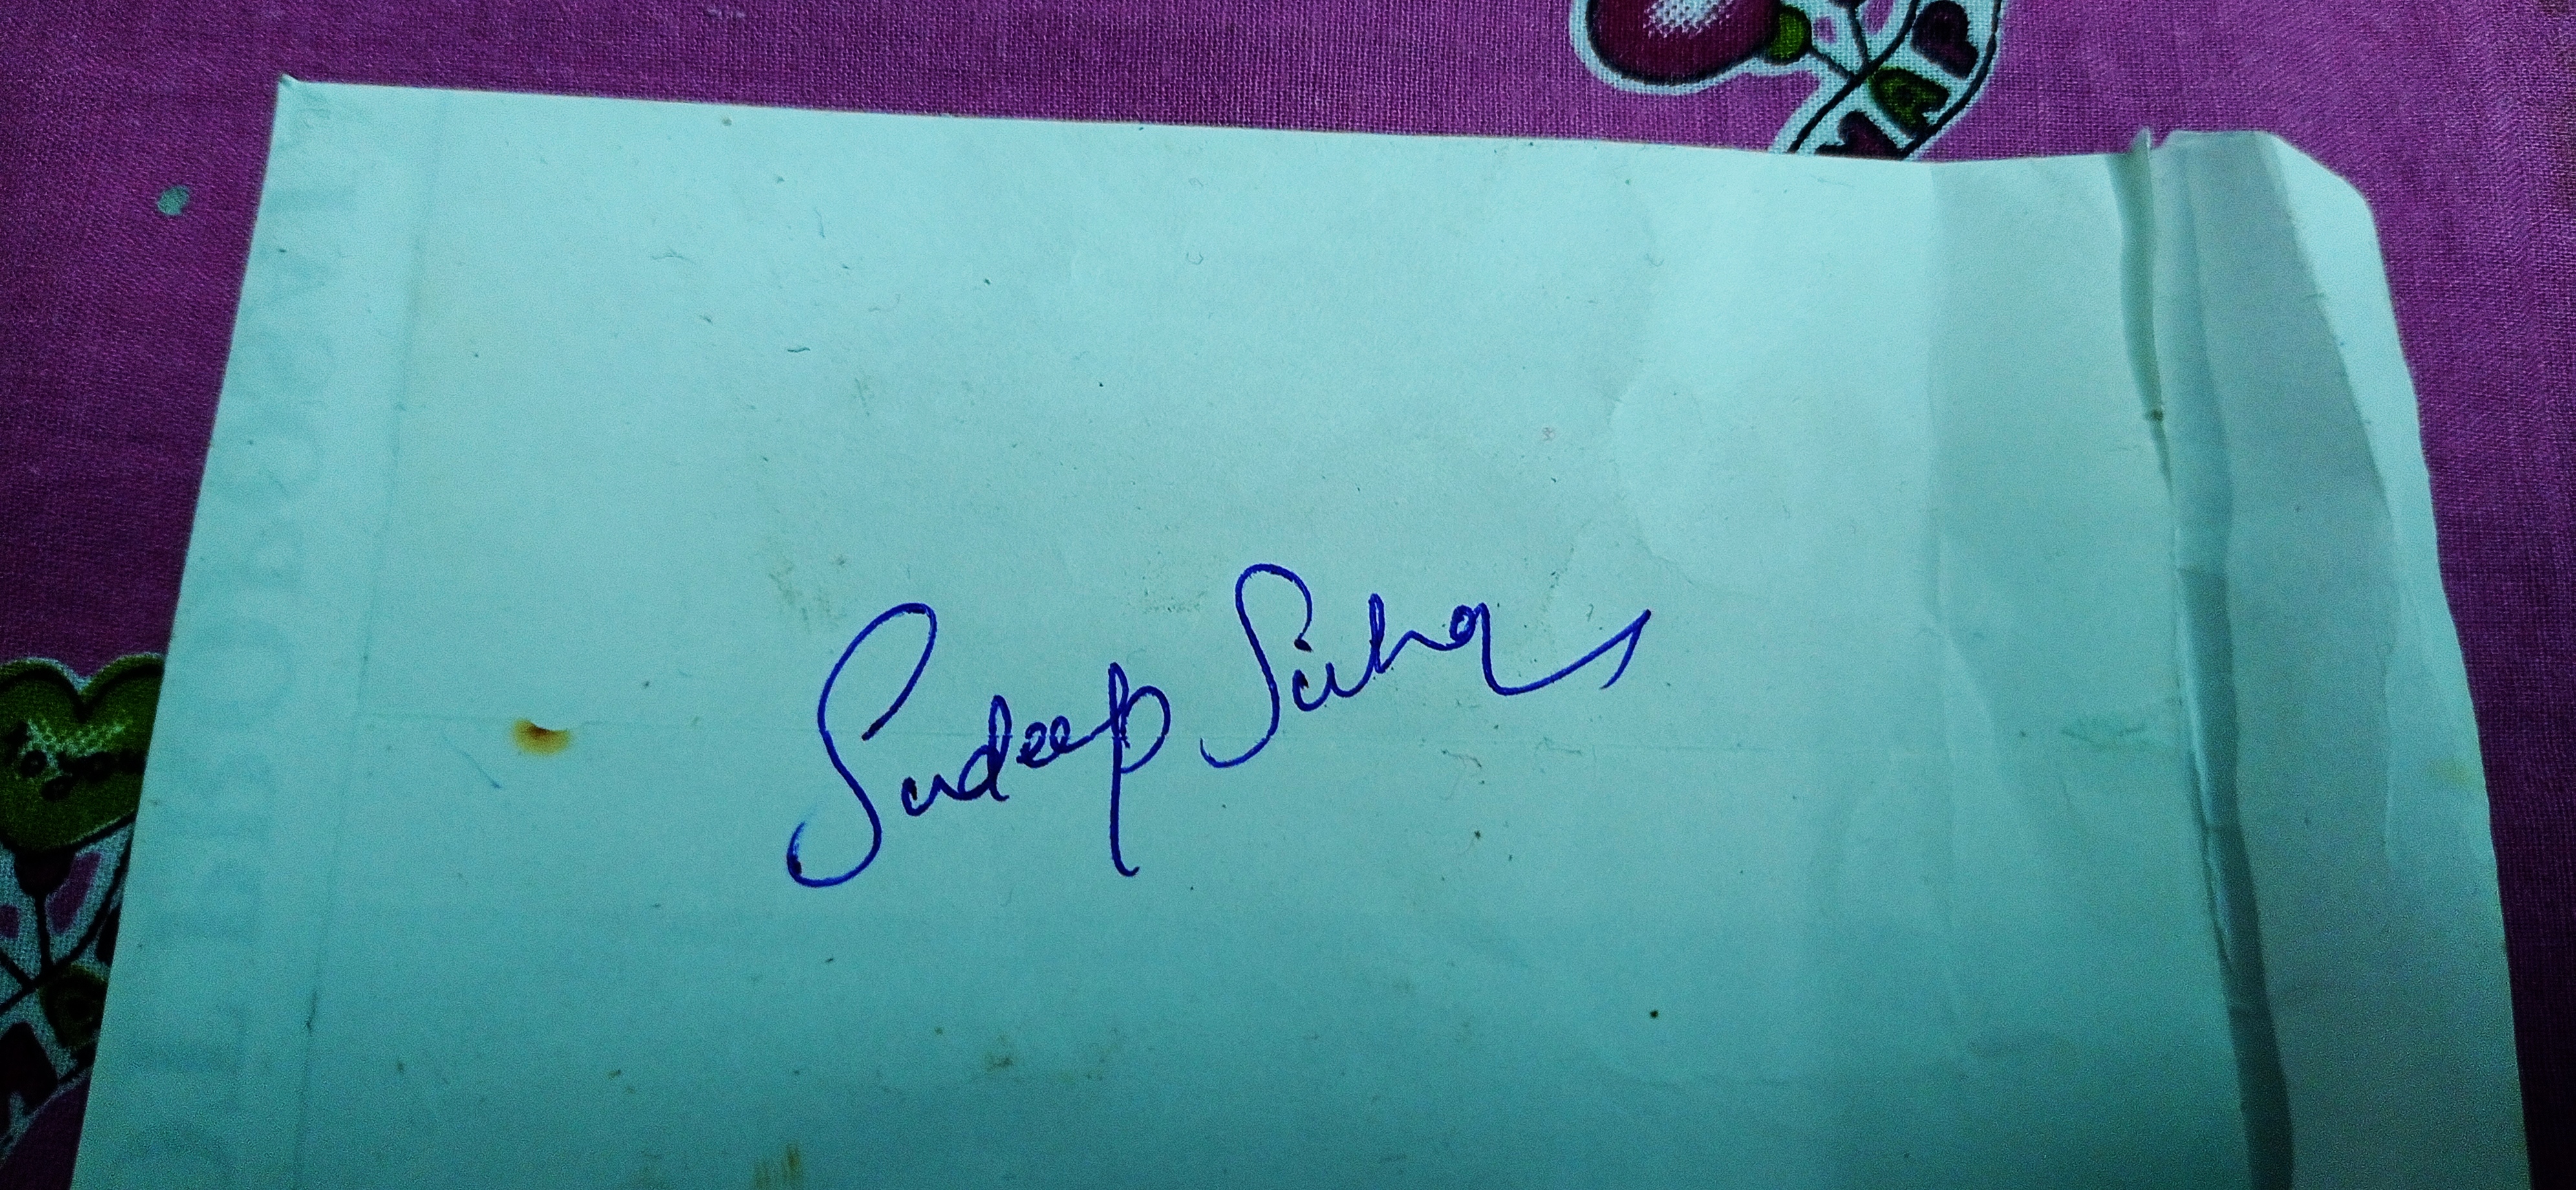 Sudeep Sinha